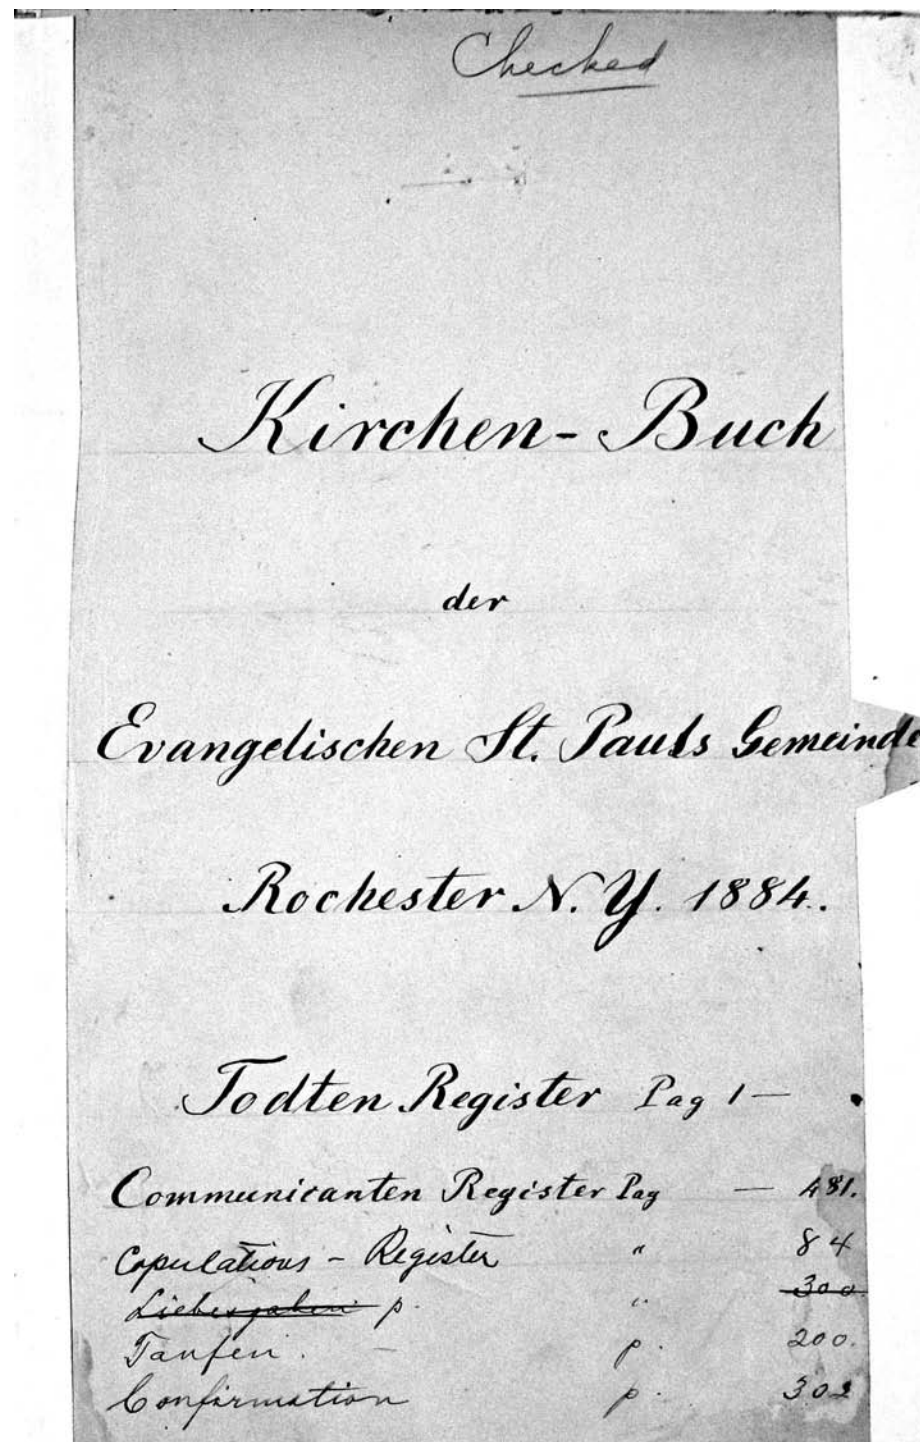 Checked
Kirchen - Buch
der
Evangelischen St. Pauls Gemeinde
Rochester N. Y. 1884.
Todten Register Pag 1 —
Communicanten Register Pag — 481.
Copulations - Register " 84
Liebesgaben p. " 300
Taufen. — p. 200.
Confirmation p. 302